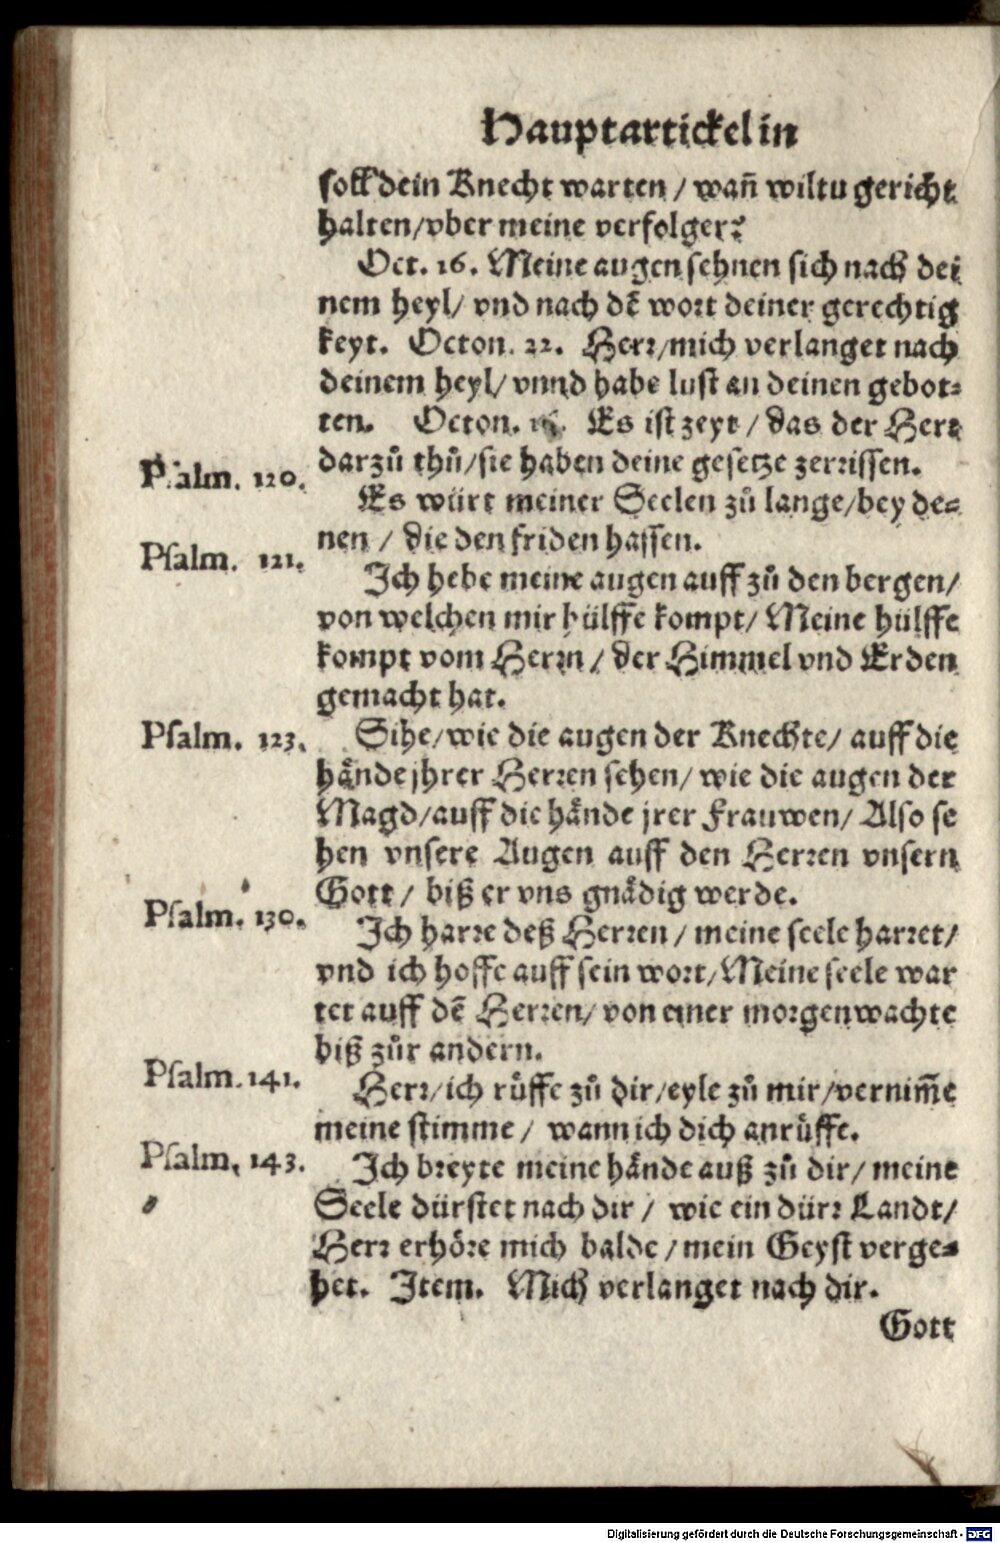 Hauptartickel in
soll dein Knecht warten / wañ wiltu gericht
halten/vber meine verfolger?
Oct. 16. Meine augen sehnen sich nach dei
nem heyl/ vnd nach dē wort deiner gerechtig
keyt. Octon. 22. Herr/mich verlanget nach
deinem heyl/ vnnd habe lust an deinen gebot⸗
ten. Octon. 16. Es ist zeyt / das der Herr
darzů thů/sie haben deine gesetze zerrissen.
Psalm. 120.
Es würt meiner Seelen zů lange/bey de⸗
nen / die den friden hassen.
Psalm. 121.
Ich hebe meine augen auff zů den bergen/
von welchen mir hülffe kompt/ Meine hülffe
kompt vom Herrn / der Himmel vnd Erden
gemacht hat.
Psalm. 123.
Sihe/wie die augen der Knechte/ auff die
hände jhrer Herren sehen/ wie die augen der
Magd/auff die hände jrer Frauwen/ Also se
hen vnsere Augen auff den Herren vnsern
Gott / biß er vns gnädig werde.
Psalm. 130.
Ich harre deß Herren / meine seele harret/
vnd ich hoffe auff sein wort/Meine seele war
tet auff dē Herren/ von einer morgenwachte
biß zůr andern.
Psalm. 141.
Herr/ich růffe zů dir/eyle zů mir/vernim̄e
meine stimme / wann ich dich anrůffe.
Psalm. 143.
Ich breyte meine hände auß zů dir/ meine
Seele dürstet nach dir / wie ein dürr Landt/
Herr erhöre mich balde / mein Geyst verge⸗
het. Item. Mich verlanget nach dir.
Gott
Digitalisierung gefördert durch die Deutsche Forschungsgemeinschaft - DFG